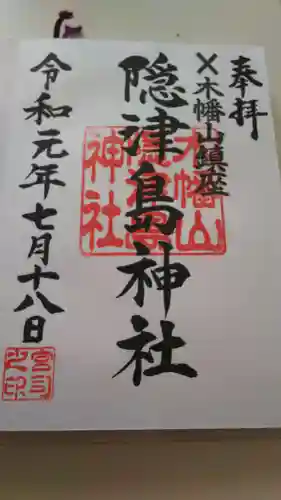 奉拝
×木幡山鎮座
隠津島神社
令和元年七月十八日
木幡山
隠津島
神社
宮司
之印